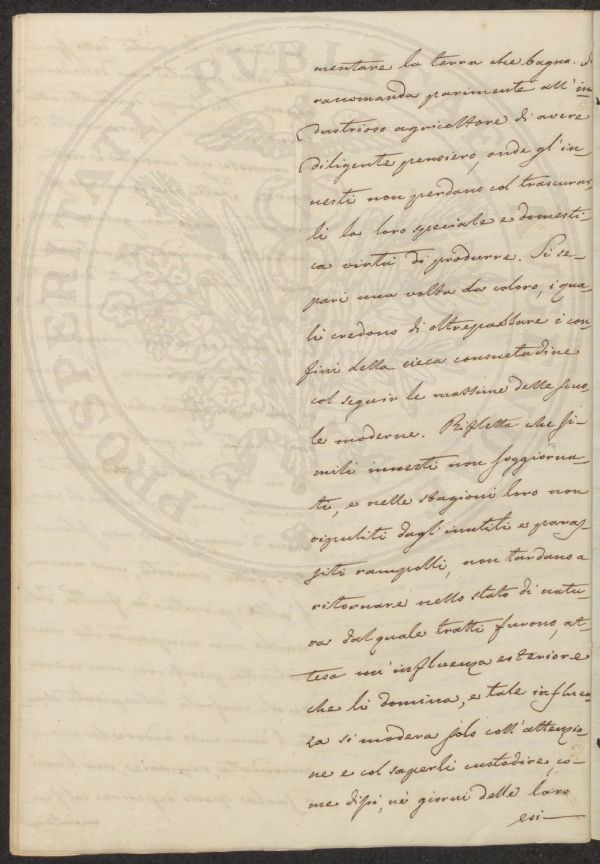 mentare la terra che bagna. Si
raccomanda parimente all'in-
dustrioso agricoltore di avere
diligente pensiero, onde gl'in-
nesti non perdano col trascurar-
li la loro speciale e domesti-
ca virtù di produrre. Si se-
pari una volta da coloro, i qua-
li credono di oltrepassare i con
fini della cieca consuetudine
col seguir le massime delle scuo-
le moderne. Rifletta che si-
mili innesti non soggiorna-
ti, e nelle stagioni loro non
ripuliti dagl'inutili e paras-
siti rampolli, non tardano a
ritornare nello stato di natu-
ra dal quale tratti furono, at-
tesa un'influenza esteriore
che li domina, e tale influen
za si modera solo coll'attenzio-
ne e col saperli custodire, co-
me dissi, nè giorni delle loro
esi-
PROSPERITATI PUBLICAE